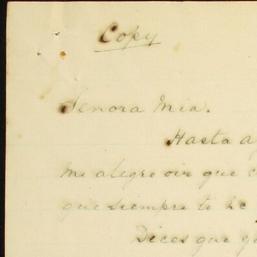 Copy
Senora Mia.
Hasta a
me alegre oir que
que siempre te he
Dices que